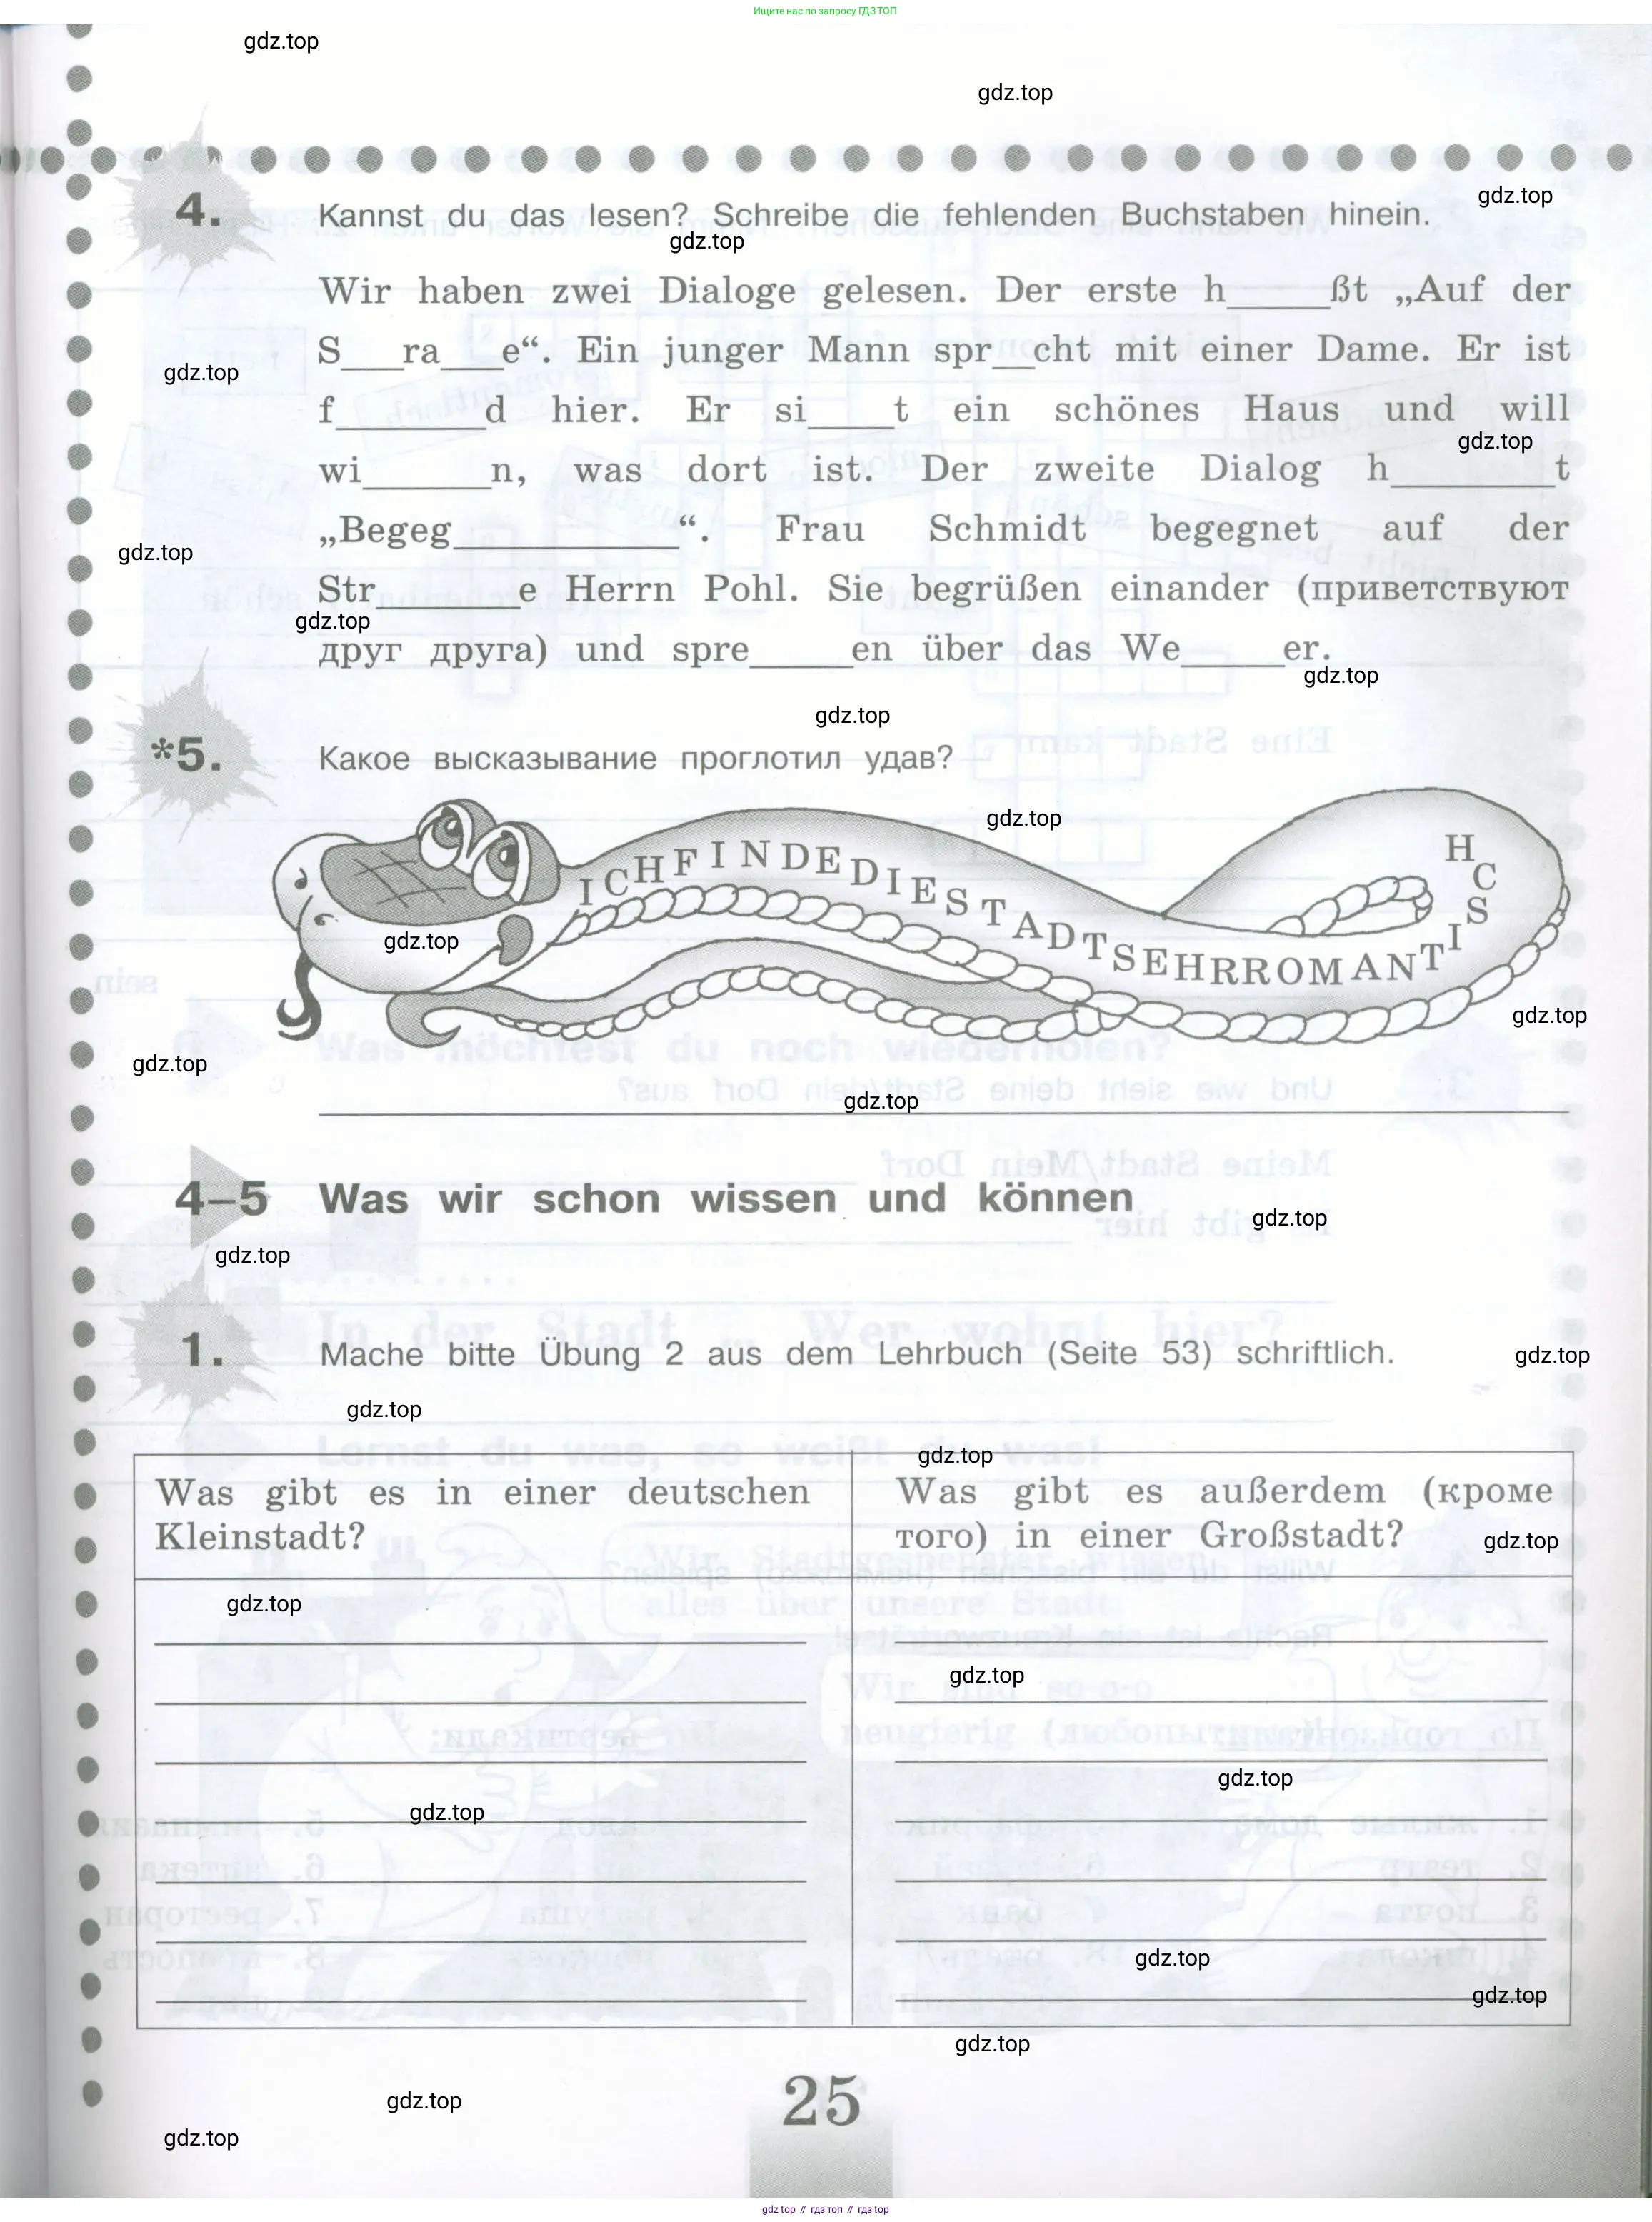 Ищите нас по запросу ГДЗ ТОП
gdz.top
gdz.top
gdz.top
4. Kannst du das lesen? Schreibe die fehlenden Buchstaben hinein.
gdz.top
Wir haben zwei Dialoge gelesen. Der erste h_____ßt „Auf der
S___ra___e“. Ein junger Mann spr__cht mit einer Dame. Er ist
gdz.top
f_______d hier. Er si____t ein schönes Haus und will
gdz.top
wi______n, was dort ist. Der zweite Dialog h________t
„Begeg___________“. Frau Schmidt begegnet auf der
gdz.top
Str_______e Herrn Pohl. Sie begrüßen einander (приветствуют
gdz.top
друг друга) und spre_____en über das We_____er.
gdz.top
gdz.top
*5. Какое высказывание проглотил удав?
gdz.top
ICHFINDEDIESTADTSEHRROMANTISCH
gdz.top
gdz.top
gdz.top
gdz.top
4–5 Was wir schon wissen und können
gdz.top
gdz.top
1. Mache bitte Übung 2 aus dem Lehrbuch (Seite 53) schriftlich.
gdz.top
gdz.top
gdz.top
Was gibt es in einer deutschen
Kleinstadt?
Was gibt es außerdem (кроме
того) in einer Großstadt?
gdz.top
gdz.top
gdz.top
gdz.top
gdz.top
gdz.top
gdz.top
gdz.top
25
gdz.top
gdz.top
gdz top // гдз топ // гдз top